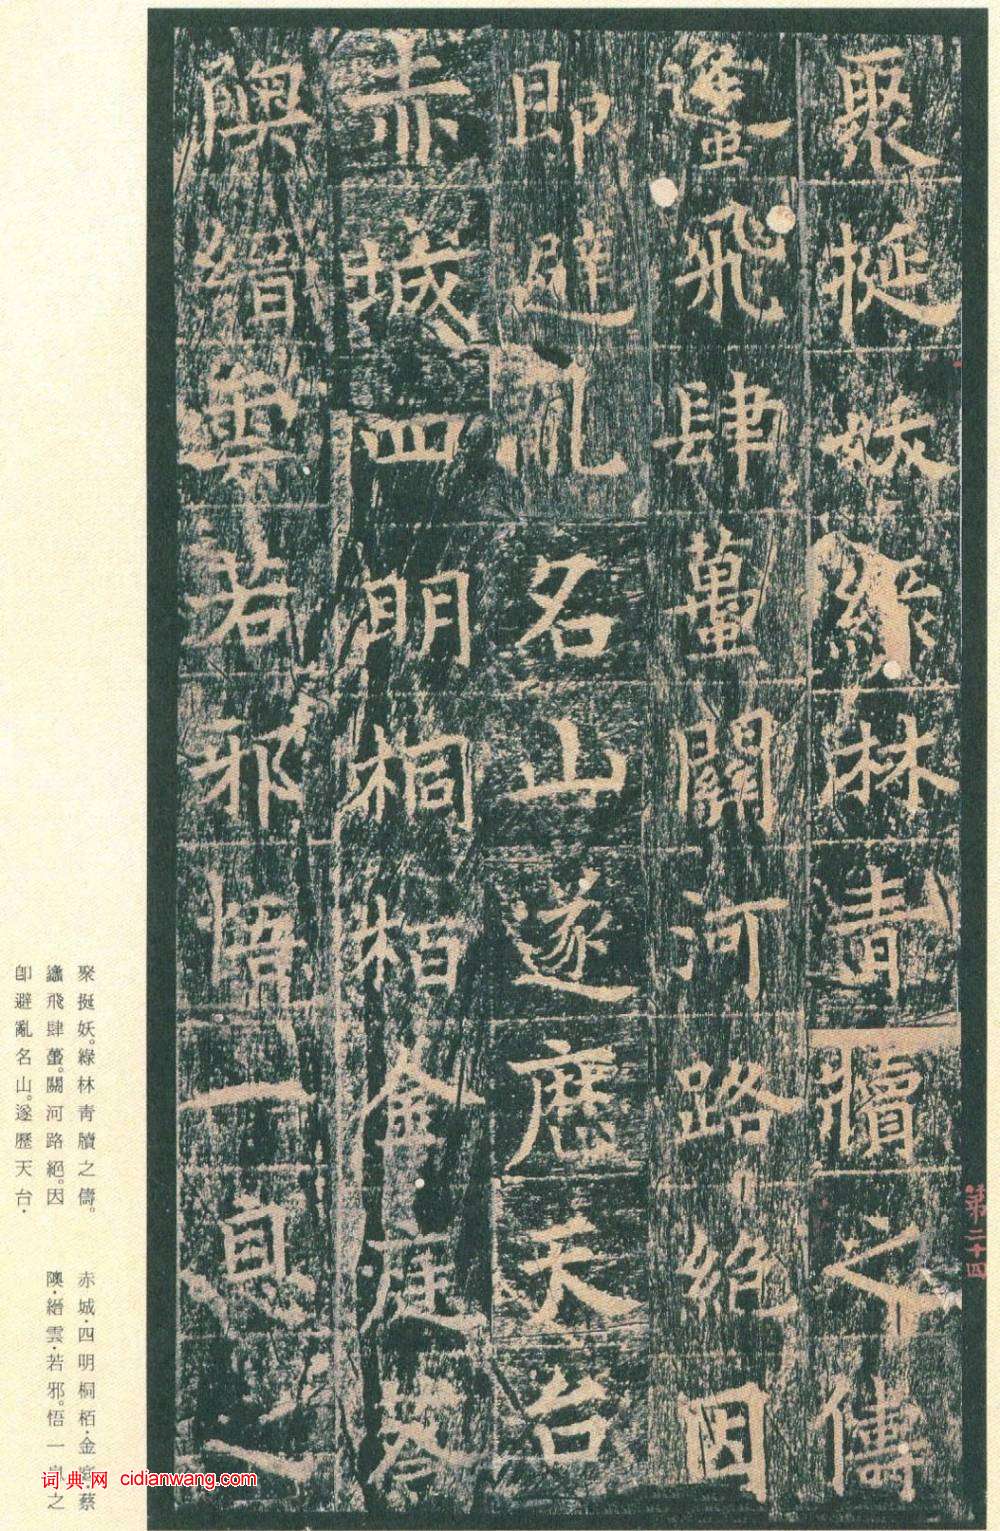 聚挻妖綠林青犢之儔
蠭飛肆蠆關河路絕因
即避亂名山遂歷天台
赤城四明桐栢金庭蔡
隩縉雲若邪悟一息之
聚挻妖。綠林青牘之儔。
蠭飛肆蠆。關河路絕。因
卽避亂名山。遂歷天台·
赤城·四明桐栢·金庭·蔡
隩·縉雲·若邪。悟一息之
词典网 cidianwang.com